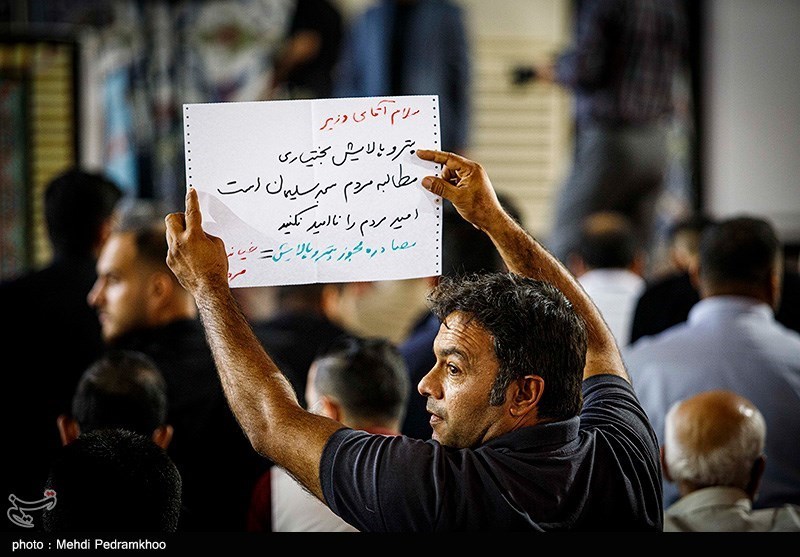 سلام آقای وزیر
پتروپالایش بختیاری
مطالبه مردم مسجدسلیمان است
امید مردم را ناامید نکنید
مصادره مجوز پتروپالایش =
تسنیم
photo : Mehdi Pedramkhoo